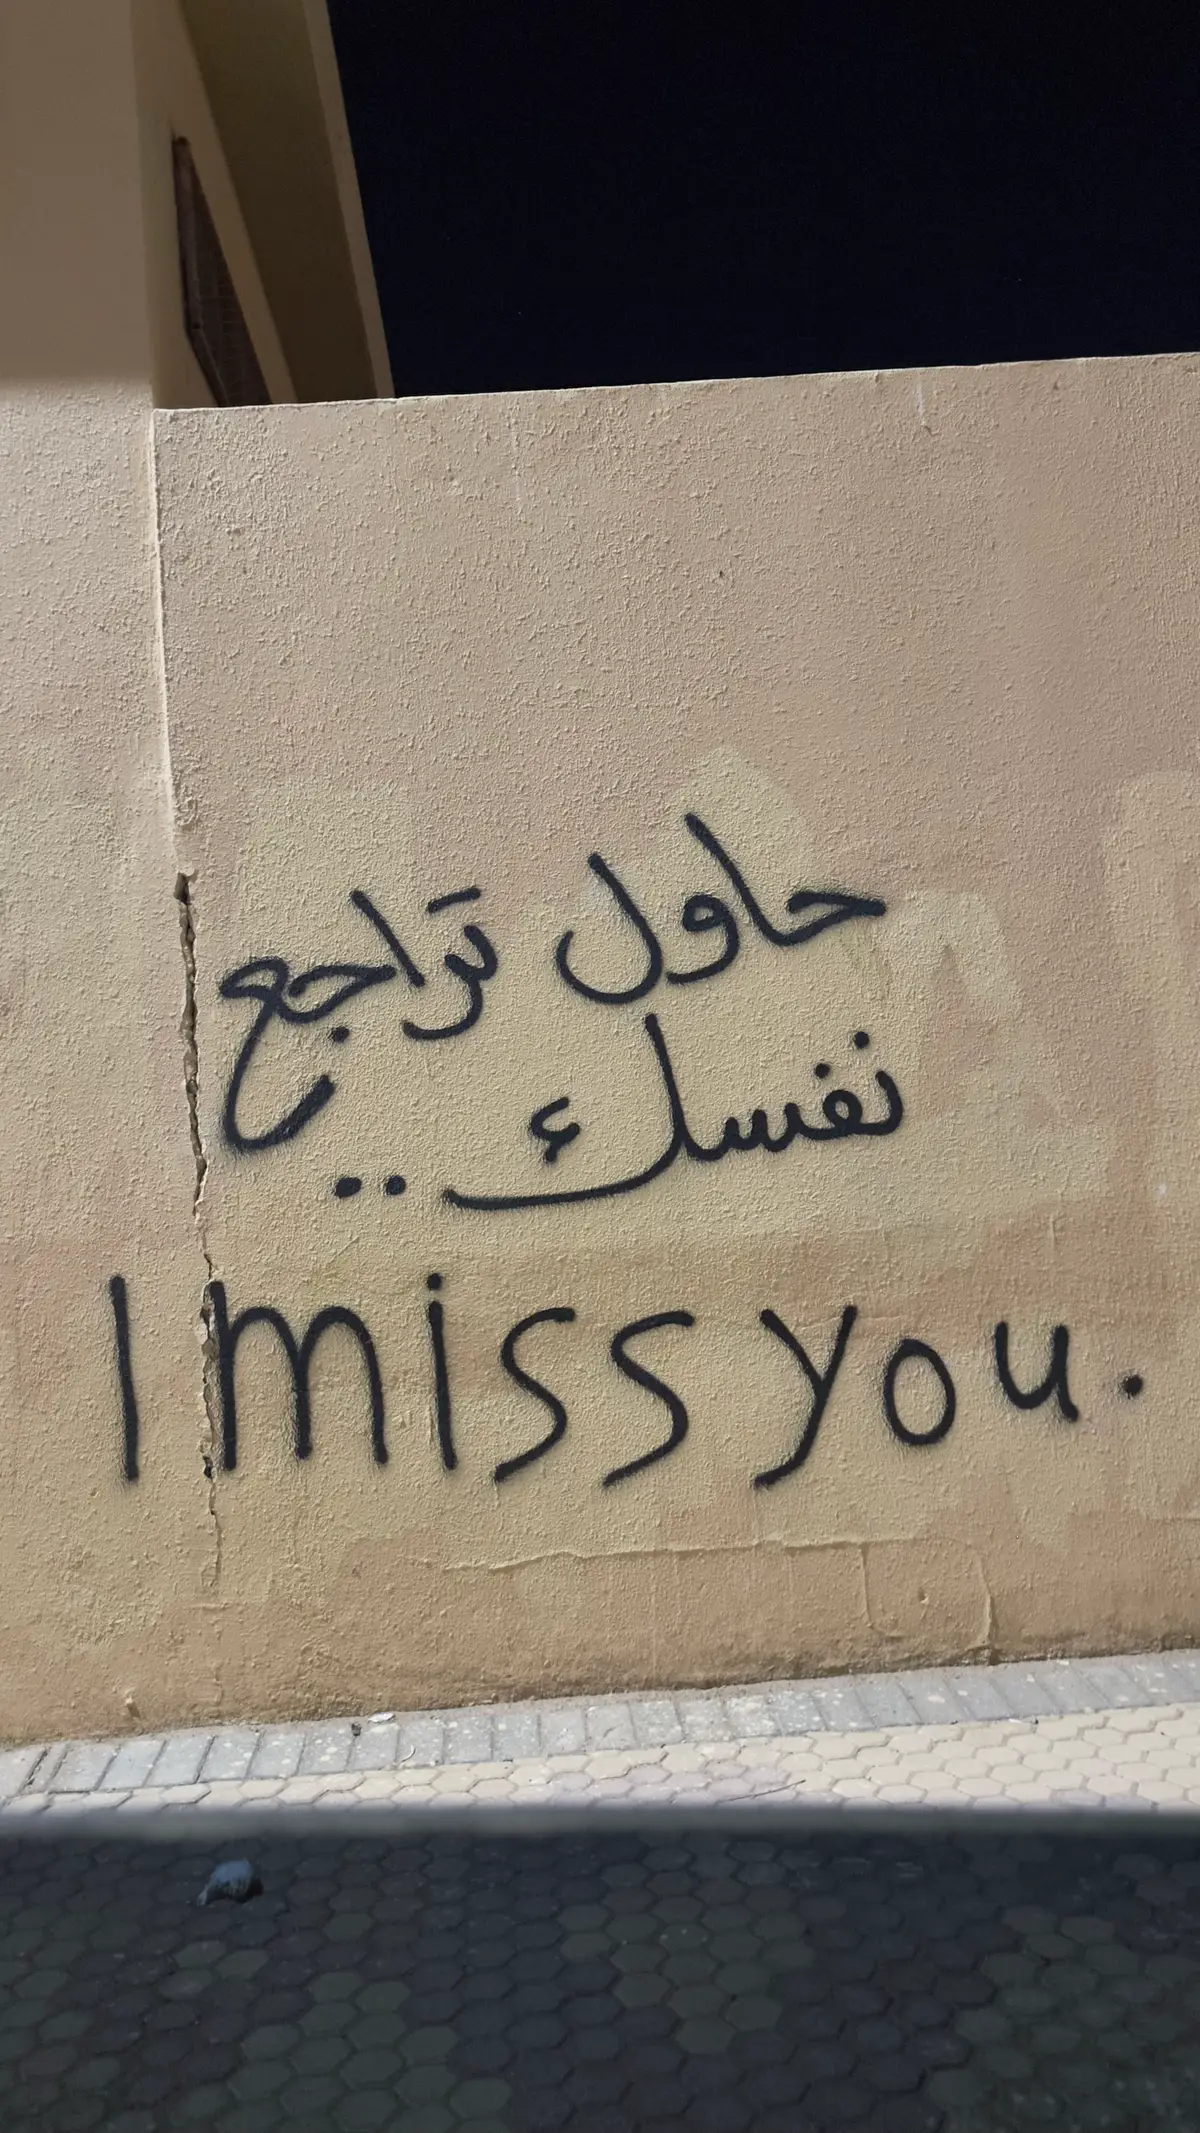 حاول تراجع
نفسك ..
I miss you.